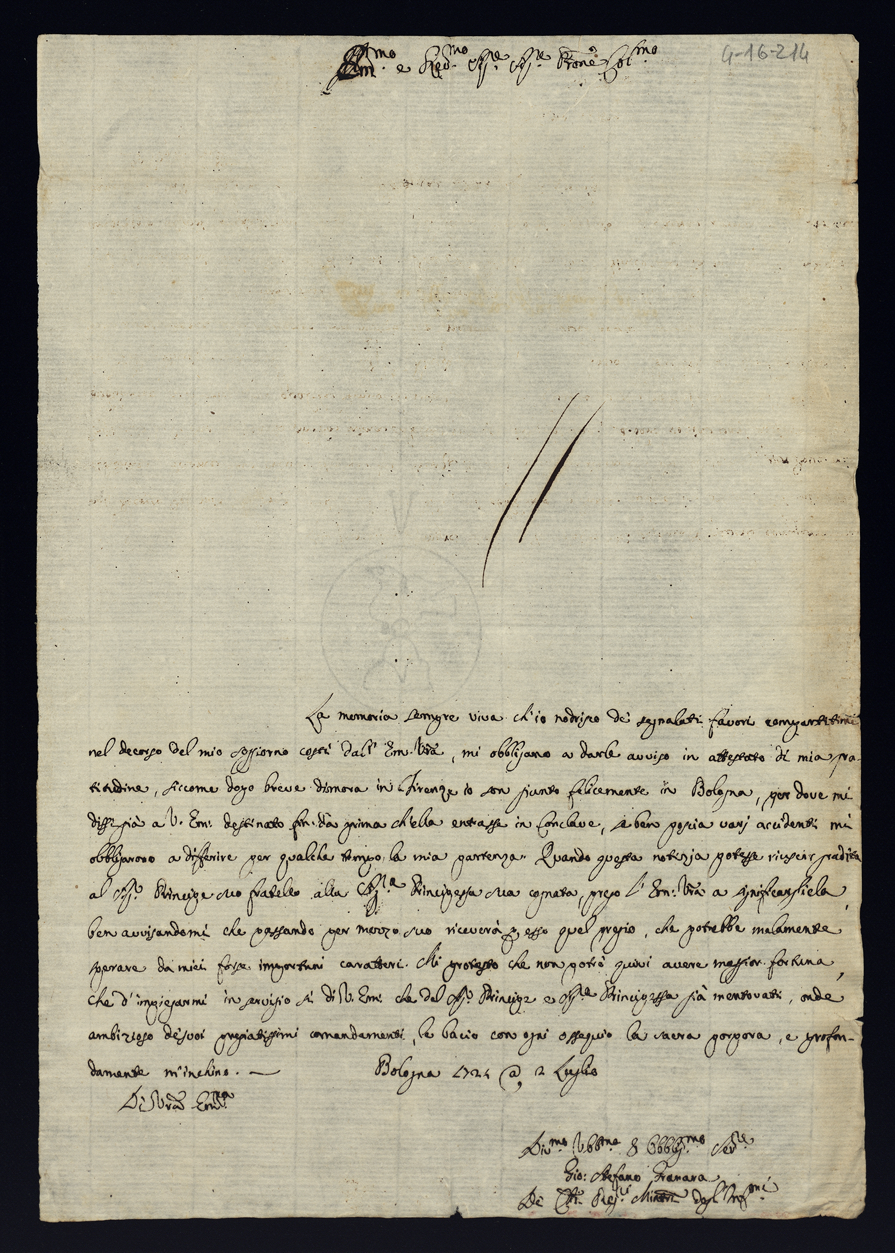 4-16-214
Em.mo e Rev.mo Sig.re Sig.re Prone Col.mo
La memoria sempre viva ch'io nodrisco de' segnalati favori compartitimi
nel decorso del mio soggiorno costì dall' Em.ª Vrã, mi obbligano a darle avviso in attestato di mia gra-
titudine, siccome dopo breve dimora in Firenze io son giunto felicemente in Bologna, per dove mi
dissi già a V. Em. destinato fin da prima ch'ella entrasse in Conclave, se ben poscia varj accidenti mi
obbligarono a differire per qualche tempo la mia partenza. Quando questa notizia potesse riuscir gradita
al Sig. Principe suo fratello alla Sig.ra Principessa sua cognata, prego l' Em. Vrã a significargliela,
ben avvisandomi che passando per mezzo suo riceverà presso quel pregio, che potrebbe malamente
sperare da miei forse importuni caratteri. Mi protesto che non potrò quivi avere maggior fortuna,
che d'impiegarmi in servigio sì di V. Em. che del Sig. Principe e Sig.ra Principessa già mentovati, onde
ambizioso de' suoi pregiatissimi comandamenti, le bacio con ogni ossequio la sacra porpora, e profon-
damente m'inchino. — Bologna 1721 @ 2 Luglio
Di Vrã Em.za
Div.mo Obb.mo & Obblig.mo Ser.re
Gio: Stefano
De Minori degl' Inf.mi